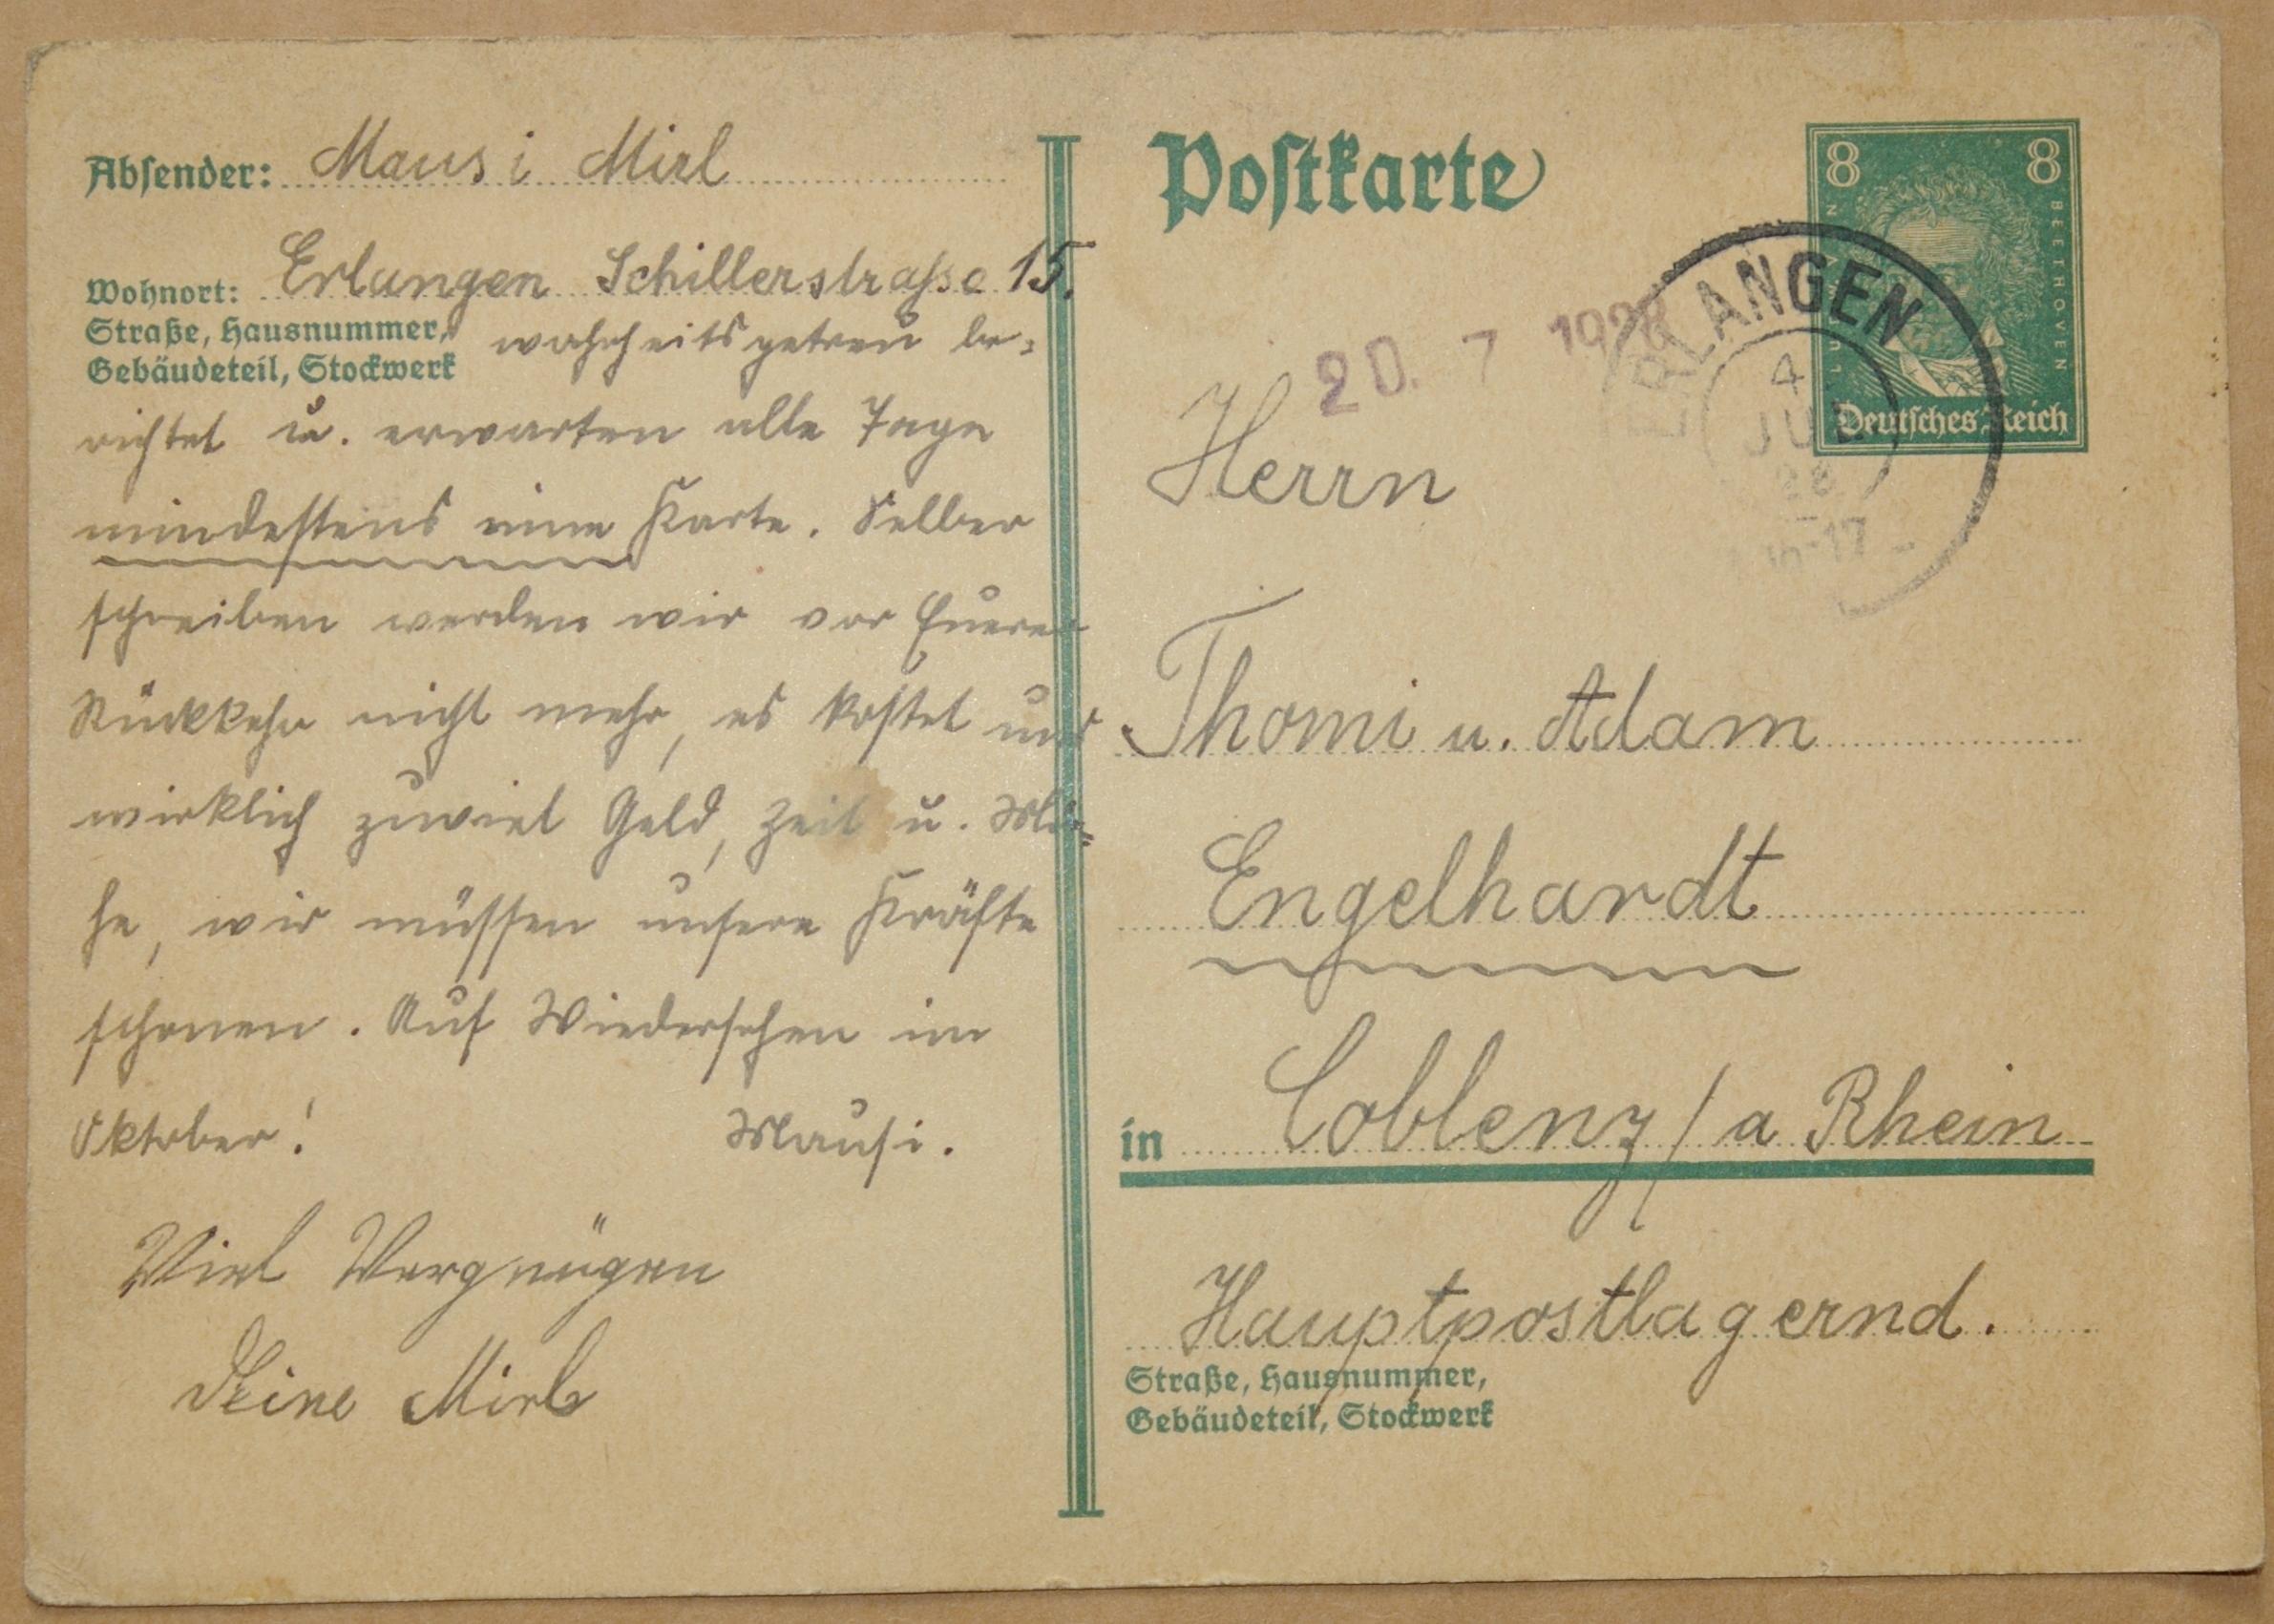 Absender: Mausi Mirl
Wohnort: Erlangen Schillerstrasse 15.
Straße, Hausnummer,
Gebäudeteil, Stockwerk
wahrheitsgetreu be-
richtet u. erwarten alle Tage
mindestens eine Karte. Selber
schreiben werden wir vor Eurer
Rückkehr nicht mehr, es kostet uns
wirklich zuviel Geld, Zeit u. Mü-
he, wir müssen unsere Kräfte
schonen. Auf Wiedersehen im
Oktober!
Mausi.
Viel Vergnügen
Deine Mirl
Postkarte
8 8
LUDWIG VAN BEETHOVEN
Deutsches Reich
ERLANGEN
4
JUL
28
16-17
20. 7 1928
Herrn
Thomi u. Adam
Engelhardt
in Coblenz / a Rhein
Hauptpostlagernd.
Straße, Hausnummer,
Gebäudeteil, Stockwerk